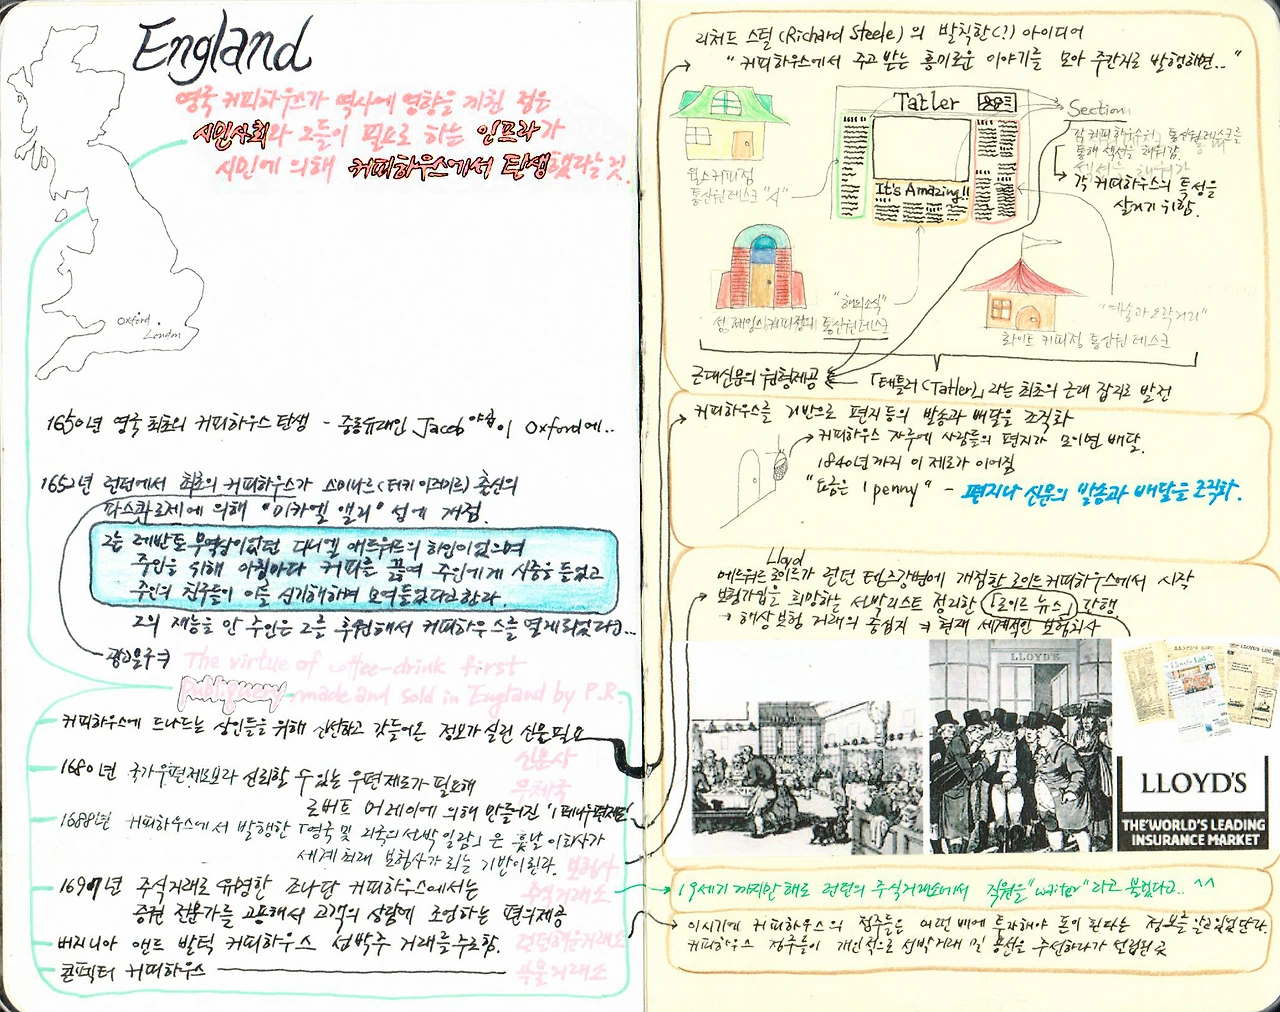 England
영국 커피하우스가 역사에 영향을 끼친 점은
시민사회와 그들이 필요로 하는 인프라가
시민에 의해 커피하우스에서 탄생했다는 것.
Oxford
London
1650년 영국 최초의 커피하우스 탄생 - 중동유대인 Jacob 야곱이 Oxford에..
1652년 런던에서 최초의 커피하우스가 스미나르(터키 이즈미르) 출신의
파스콰로제에 의해 "미카엘 앨리" 섬에 개점.
그는 레반트 무역상이었던 다니엘 에드워드의 하인이었으며
주인을 위해 아침마다 커피를 끓여 주인에게 시중을 들었고
주인의 친구들이 이를 신기해하며 모여들었다고한다.
그의 재능을 안 주인은 그를 후원해서 커피하우스를 열게되었다고...
광고문구→ The virtue of coffee-drink first
publiquery made and sold in England by P.R.
커피하우스에 드나드는 상인들을 위해 신선하고 갓들어온 정보가 실린 신문필요
신문사
1680년 국가우편제도보다 신뢰할 수 있는 우편제도가 필요해
우체국
로버트 머레이에 의해 만들어진 '1페니우편제도'
1688년 커피하우스에서 발행한 「영국 및 외국의 선박 일람」은 훗날 이회사가
세계최대 보험사가 되는 기반이된다. 보험사
1697년 주식거래로 유명한 조나단 커피하우스에서는 주식거래소
증권 전문가를 고용해서 고객의 상담에 조언하는 편의제공
버지니아 앤드 발틱 커피하우스 선박주 거래를 주로함. 런던해운거래소
콘펙터 커피하우스 곡물거래소
리처드 스틸(Richard Steele)의 발칙한(?) 아이디어
"커피하우스에서 주고 받는 흥미로운 이야기를 모아 주간지로 발행하면.."
Tatler
It's Amazing!!
Section
각 커피하우스의 통신원데스크를
통해 섹션을 채워감
각 커피하우스의 특성을
살리기 위함.
윌스커피점
통신원데스크 "시"
"해외소식"
성 제임스커피점의 통신원데스크
"예술과오락거리"
화이트 커피점 통신원 데스크
근대신문의 원형제공 ← 「태틀러(Tatler)」라는 최초의 근대 잡지로 발전
커피하우스를 기반으로 편지등의 발송과 배달을 조직화
커피하우스 자루에 사람들의 편지가 모이면 배달.
1840년까지 이 제도가 이어짐
"요금은 1 penny" - 편지나 신문의 발송과 배달을 조직화.
Lloyd
에드워드 로이드가 런던 템즈강변에 개점한 로이드커피하우스에서 시작
보험가입을 희망하는 선박리스트 정리한 「로이드 뉴스」 간행
→ 해상보험 거래의 중심지 → 현재 세계적인 보험회사
LLOYD'S
LLOYD'S
THE WORLD'S LEADING
INSURANCE MARKET
19세기 까지만 해도 런던의 주식거래소에서 직원을 "waiter"라고 불렀다고.. ^^
이시기에 커피하우스의 점주들은 어떤 배에 투자해야 돈이 된다는 정보를 알고있었단다.
커피하우스 점주들이 개인적으로 선박거래 및 용선을 주선하다가 설립된 곳